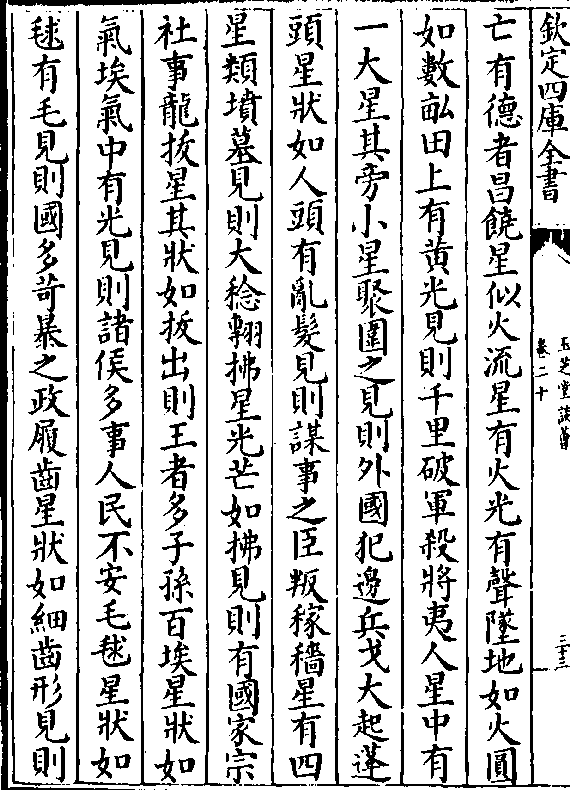 欽定四庫全書
玉芝堂談薈
卷二十
三十三
亡有德者昌饒星似火流星有火光有聲墜地如火圓
如數畝田上有黃光見則千里破軍殺將夷人星中有
一大星其旁小星聚圍之見則外國犯邊兵戈大起蓬
頭星狀如人頭有亂髮見則謀事之臣叛稼穡星有四
星類墳墓見則大稔翱拂星光芒如拂見則有國家宗
社事龍㧞星其狀如㧞出則王者多子孫百埃星狀如
氣埃氣中有光見則諸侯多事人民不安毛毬星狀如
毬有毛見則國多苛暴之政履齒星狀如細齒形見則